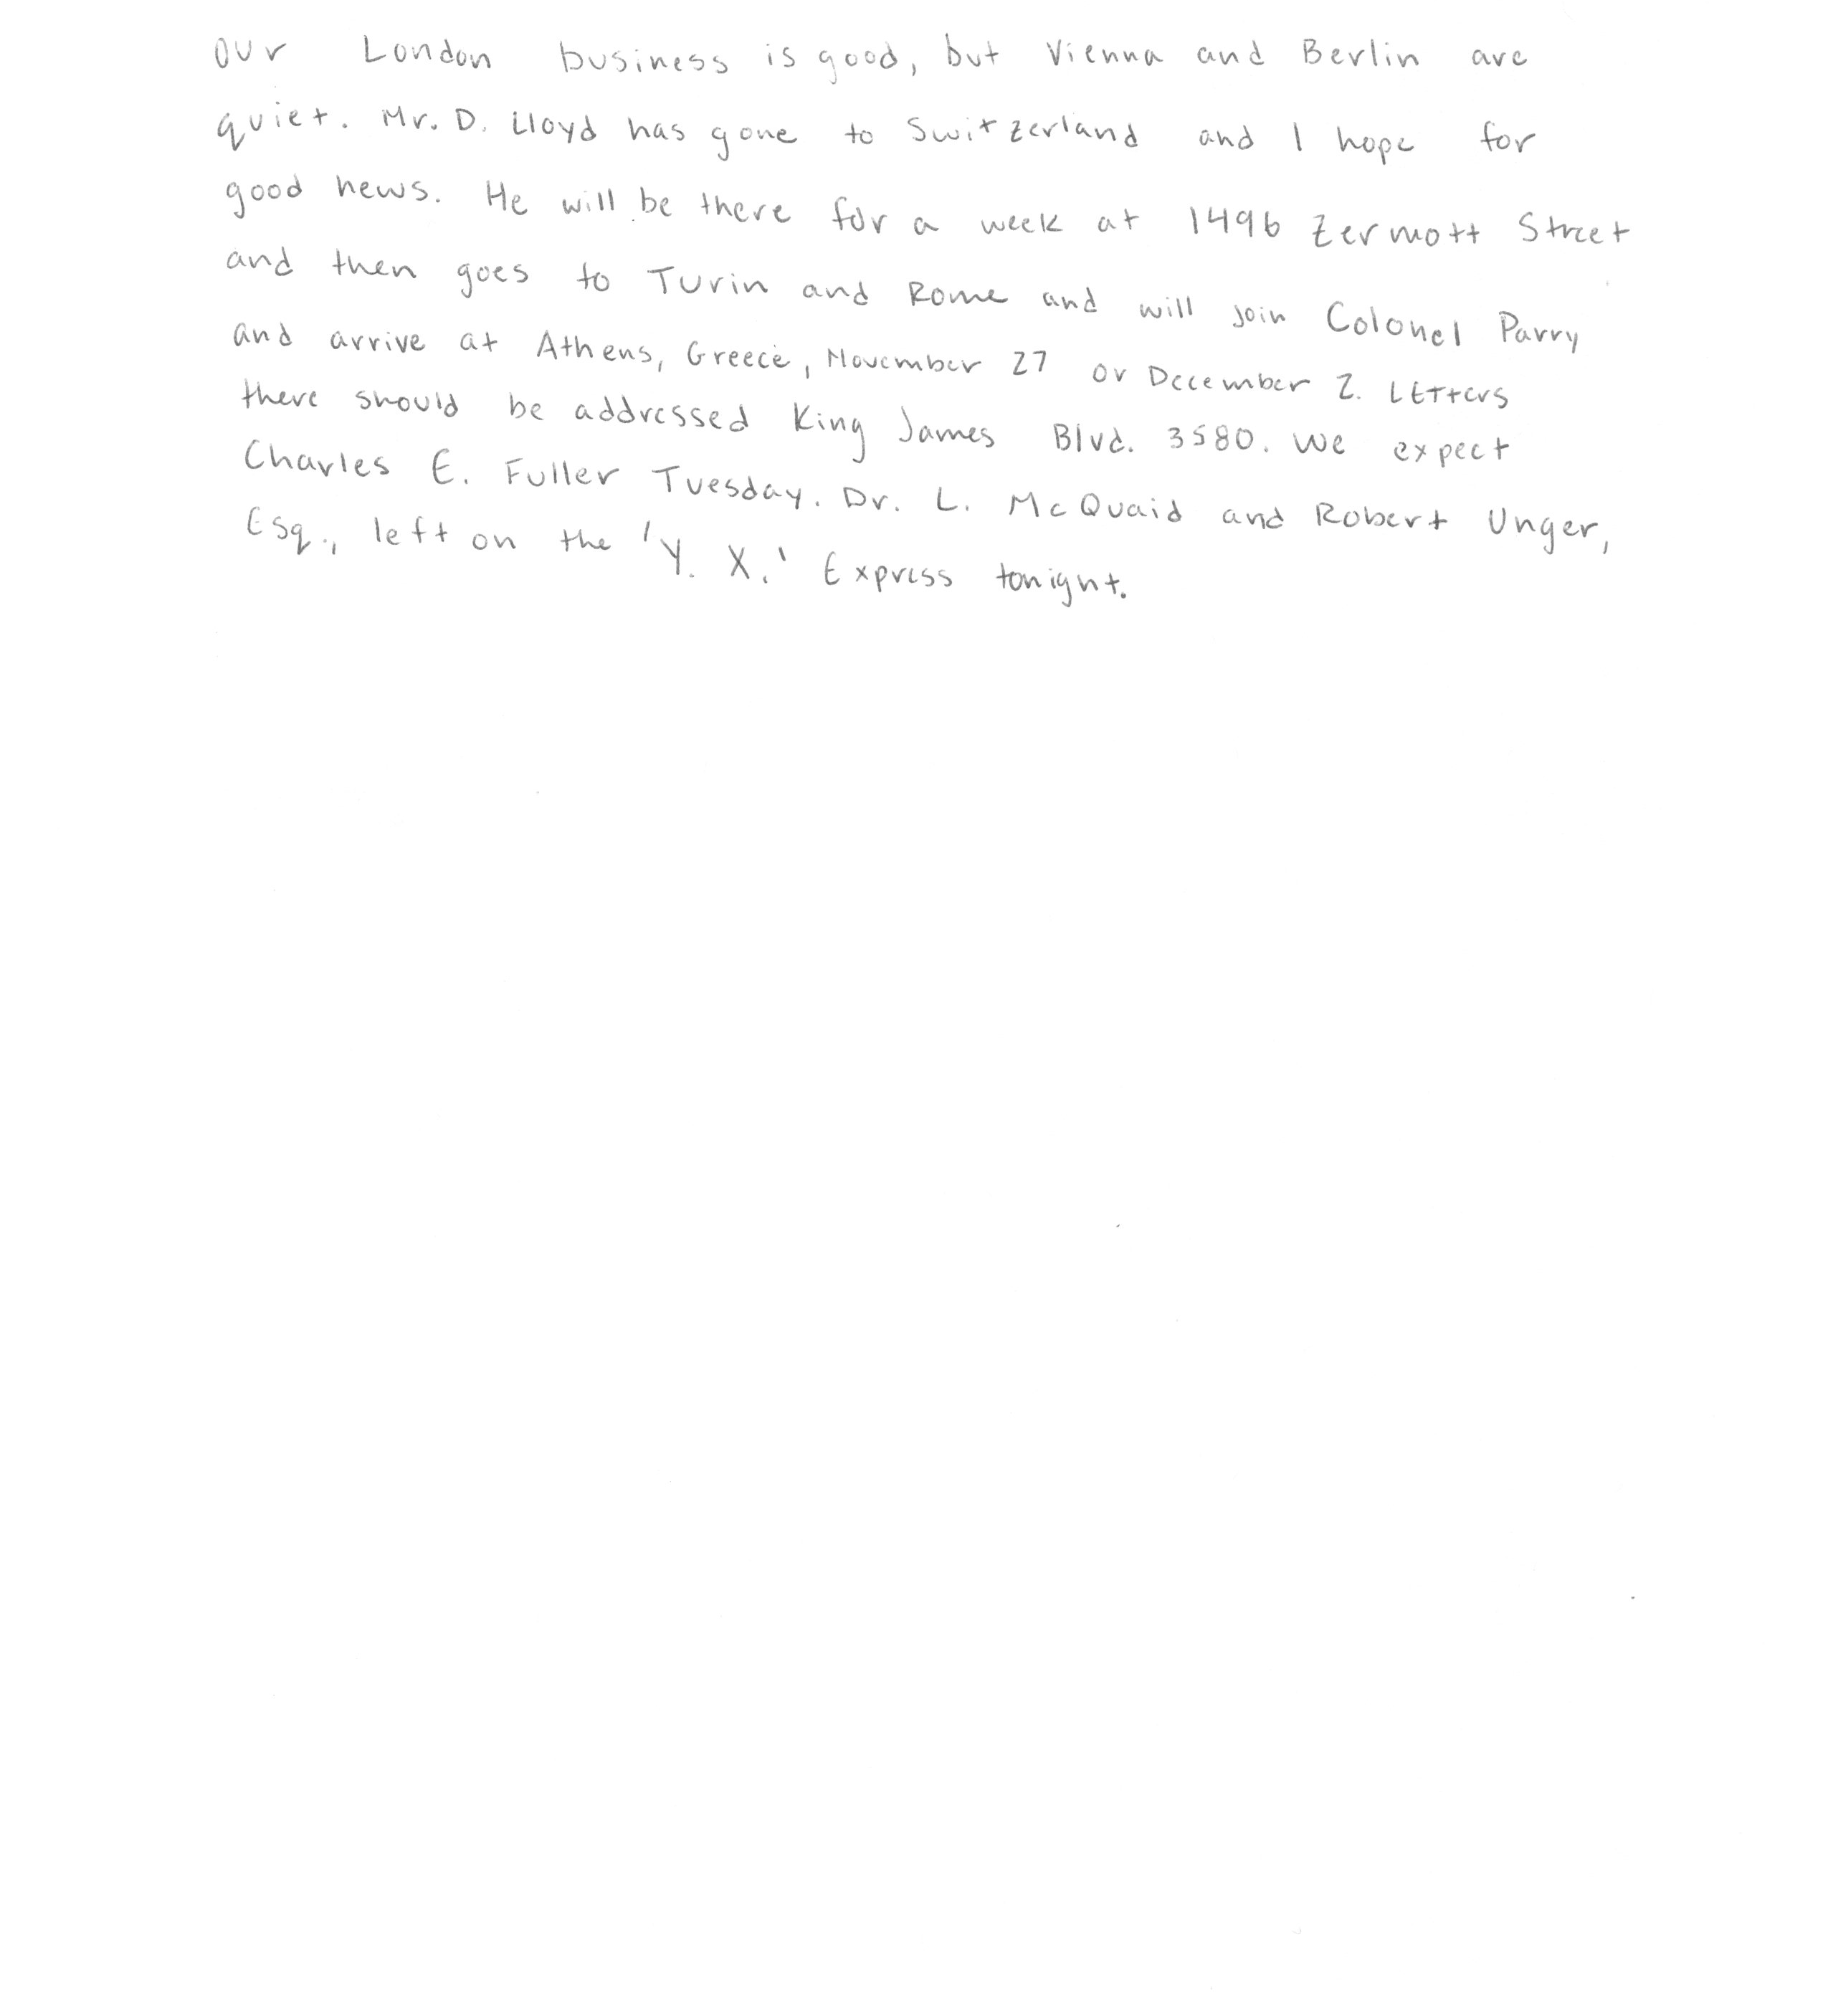 Our London business is good, but Vienna and Berlin are
quiet. Mr. D. Lloyd has gone to Switzerland and I hope for
good news. He will be there for a week at 1496 Zermott Street
and then goes to Turin and Rome and will join Colonel Parry
and arrive at Athens, Greece, November 27 or December 2. Letters
there should be addressed King James Blvd. 3580. We expect
Charles E. Fuller Tuesday. Dr. L. McQuaid and Robert Unger,
Esq., left on the 'Y. X.' Express tonight.